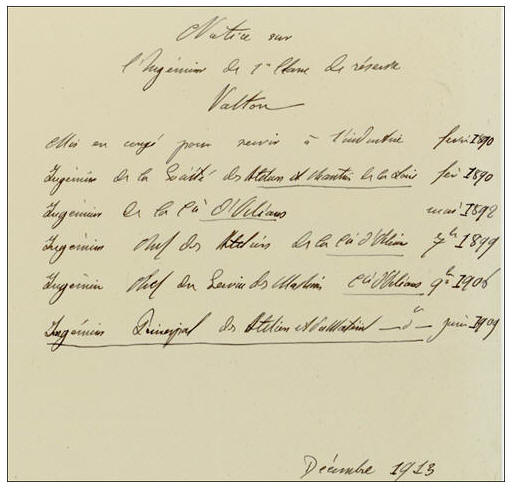 Notice sur
l'Ingénieur de 1re Classe de réserve
Valton
Mis en congé pour servir à l'industrie fevr 1890
Ingénieur de la Société des Ateliers et Chantiers de la Loire fev 1890
Ingénieur de la Cie d'Orléans mai 1892
Ingénieur Chef des Ateliers de la Cie d'Orléans 7bre 1899
Ingénieur Chef du Service des Machines Cie d'Orléans 9bre 1906
Ingénieur Principal des Ateliers et du Matériel — do — juin 1909
Décembre 1913